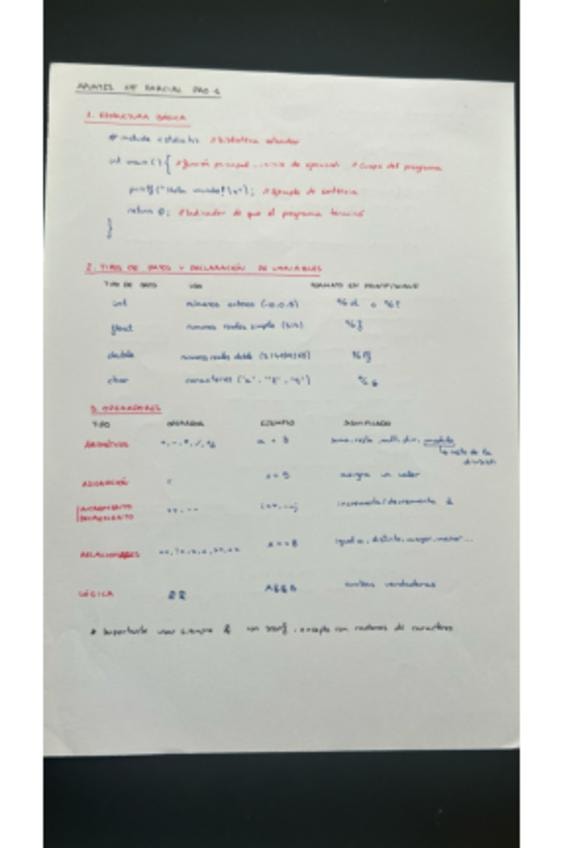 APUNTES DE PARCIAL PRO 1
1. ESTRUCTURA BÁSICA
#include <stdio.h> //biblioteca estandar
int main() { //función principal, inicio de ejecución //Cuerpo del programa
printf("Hola mundo!\n"); //Ejemplo de sentencia
return 0; //Indicador de que el programa terminó
}
2. TIPOS DE DATOS Y DECLARACIÓN DE VARIABLES
TIPO DE DATO USO FORMATO EN PRINTF/SCANF
int números enteros %d o
float numeros reales simple %f
double numeros reales doble %lf
char caracteres
3. OPERADORES
TIPO OPERADOR EJEMPLO SIGNIFICADO
ARITMÉTICOS +, -, *, /, % a + b suma, resta, mult, div, modulo
resto de la división
ASIGNACIÓN = asigna un valor
INCREMENTO ++, -- incrementa/decrementa
DECREMENTO
RELACIONALES igual a, distinto, mayor, menor...
LÓGICA && A && B ambas verdaderas
* Importante usar siempre & con scanf, excepto con cadenas de caracteres